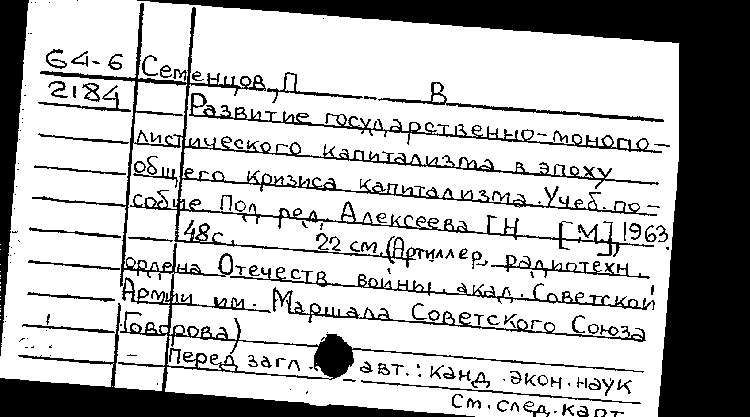 64-6 Семенцов, П В
2184 Развитие государственно-монопо-
листического капитализма в эпоху
общего кризиса капитализма. Учеб. по-
собие Под ред. Алексеева Г.Н [М], 1963.
48 с. 22 см. (Артиллер. радиотехн.
ордена Отечеств. войны акад. Советской
Армии им. Маршала Советского Союза
Говорова)
Перед загл. авт.: канд. экон. наук
См. след. карт